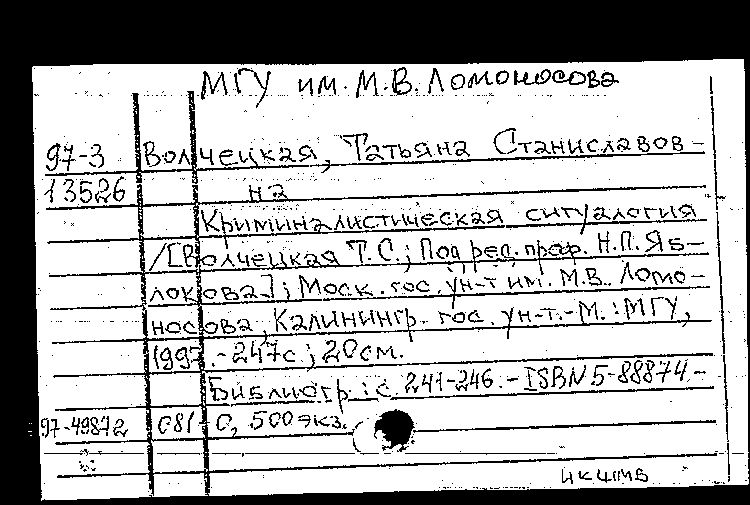 МГУ им. М.В. Ломоносова
97-3 Волчецкая, Татьяна Станиславов-
13526 на
Криминалистическая ситуалогия
/[Волчецкая Т.С.; Под ред. проф. Н.П. Яб-
локова]; Моск. гос. ун-т им. М.В. Ломо-
носова, Калинингр. гос. ун-т.-М.: МГУ,
1997.-247с.; 20см.
Библиогр.: с. 241-246.-ISBN 5-88874-
97-49872 081-0, 500экз.